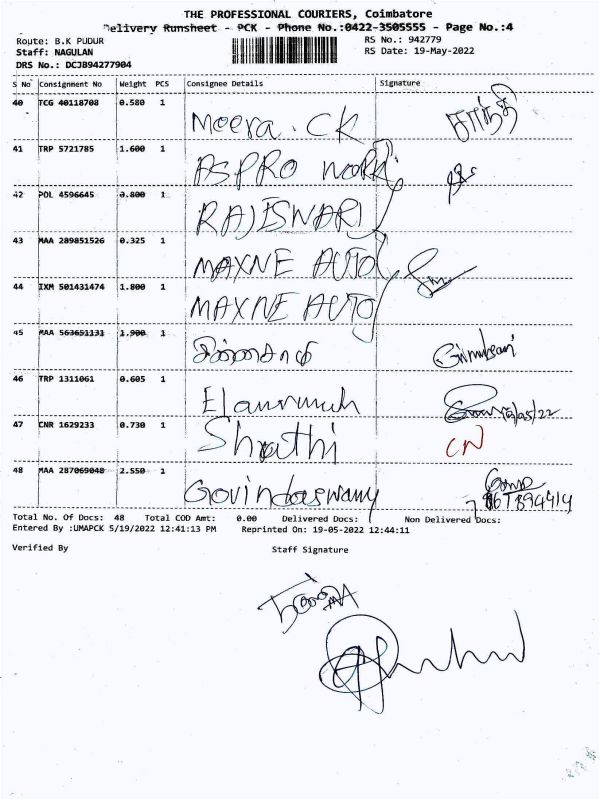 THE PROFESSIONAL COURIERS, Coimbatore
Delivery Runsheet - PCK - Phone No.:0422-3505555 - Page No.:4
Route: B.K PUDUR
RS No.: 942779
Staff: NAGULAN
RS Date: 19-May-2022
DRS No.: DCJB94277904
S No Consignment No Weight PCS Consignee Details Signature
40 TCG 40118708 0.580 1 Meera. CK சாந்தி
41 TRP 5721785 1.600 1 ASPRO
42 POL 4596645 0.800 1 RAJESWARI
43 MAA 289851526 0.325 1 MAXNE AUTO
44 IXM 501431474 1.800 1 MAXNE AUTO
45 MAA 563651131 1.900 1
46 TRP 1311061 0.605 1
47 CNR 1629233 0.730 1 Shruthi CN
48 MAA 287069048 2.550 1 Govindaswamy
Total No. Of Docs: 48 Total COD Amt: 0.00 Delivered Docs: Non Delivered Docs:
Entered By :UMAPCK 5/19/2022 12:41:13 PM Reprinted On: 19-05-2022 12:44:11
Verified By Staff Signature